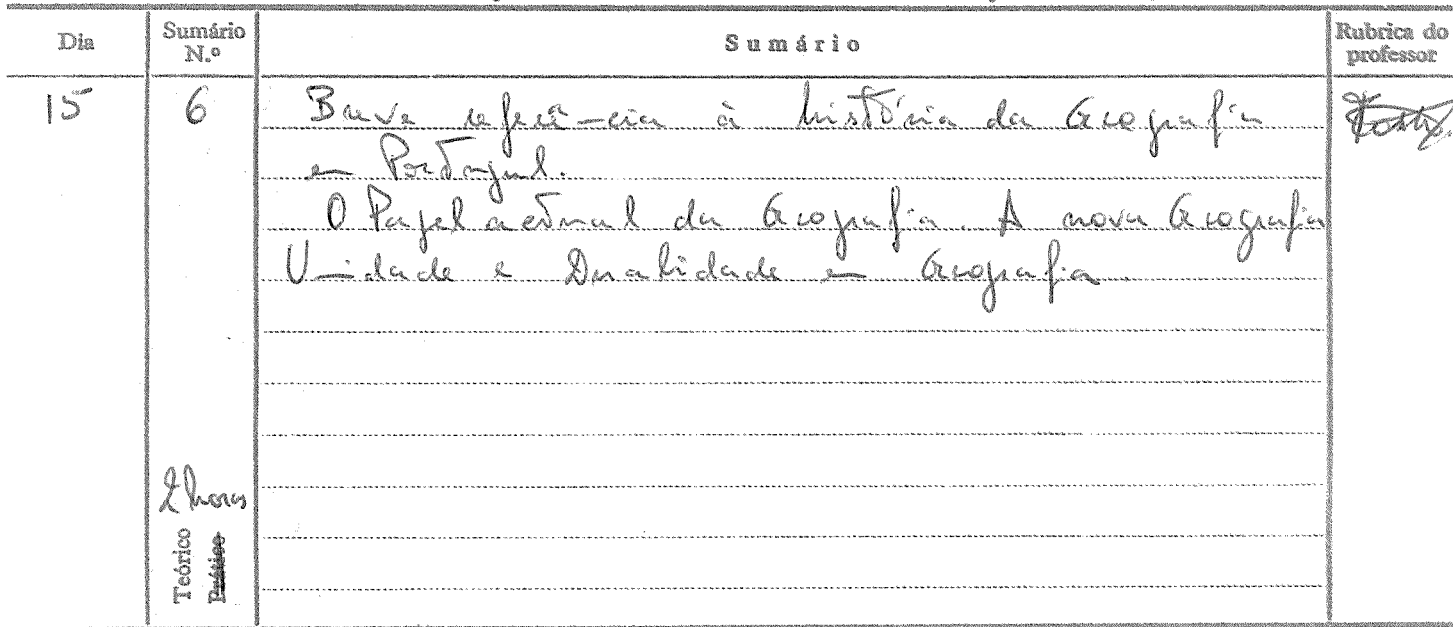 Dia Sumário N.º Sumário Rubrica do professor
15 6 Breve referência à história da Geografia
em Portugal.
O Papel actual da Geografia. A nova Geografia
Unidade e Dualidade em Geografia
2 horas
Teórico
Prático